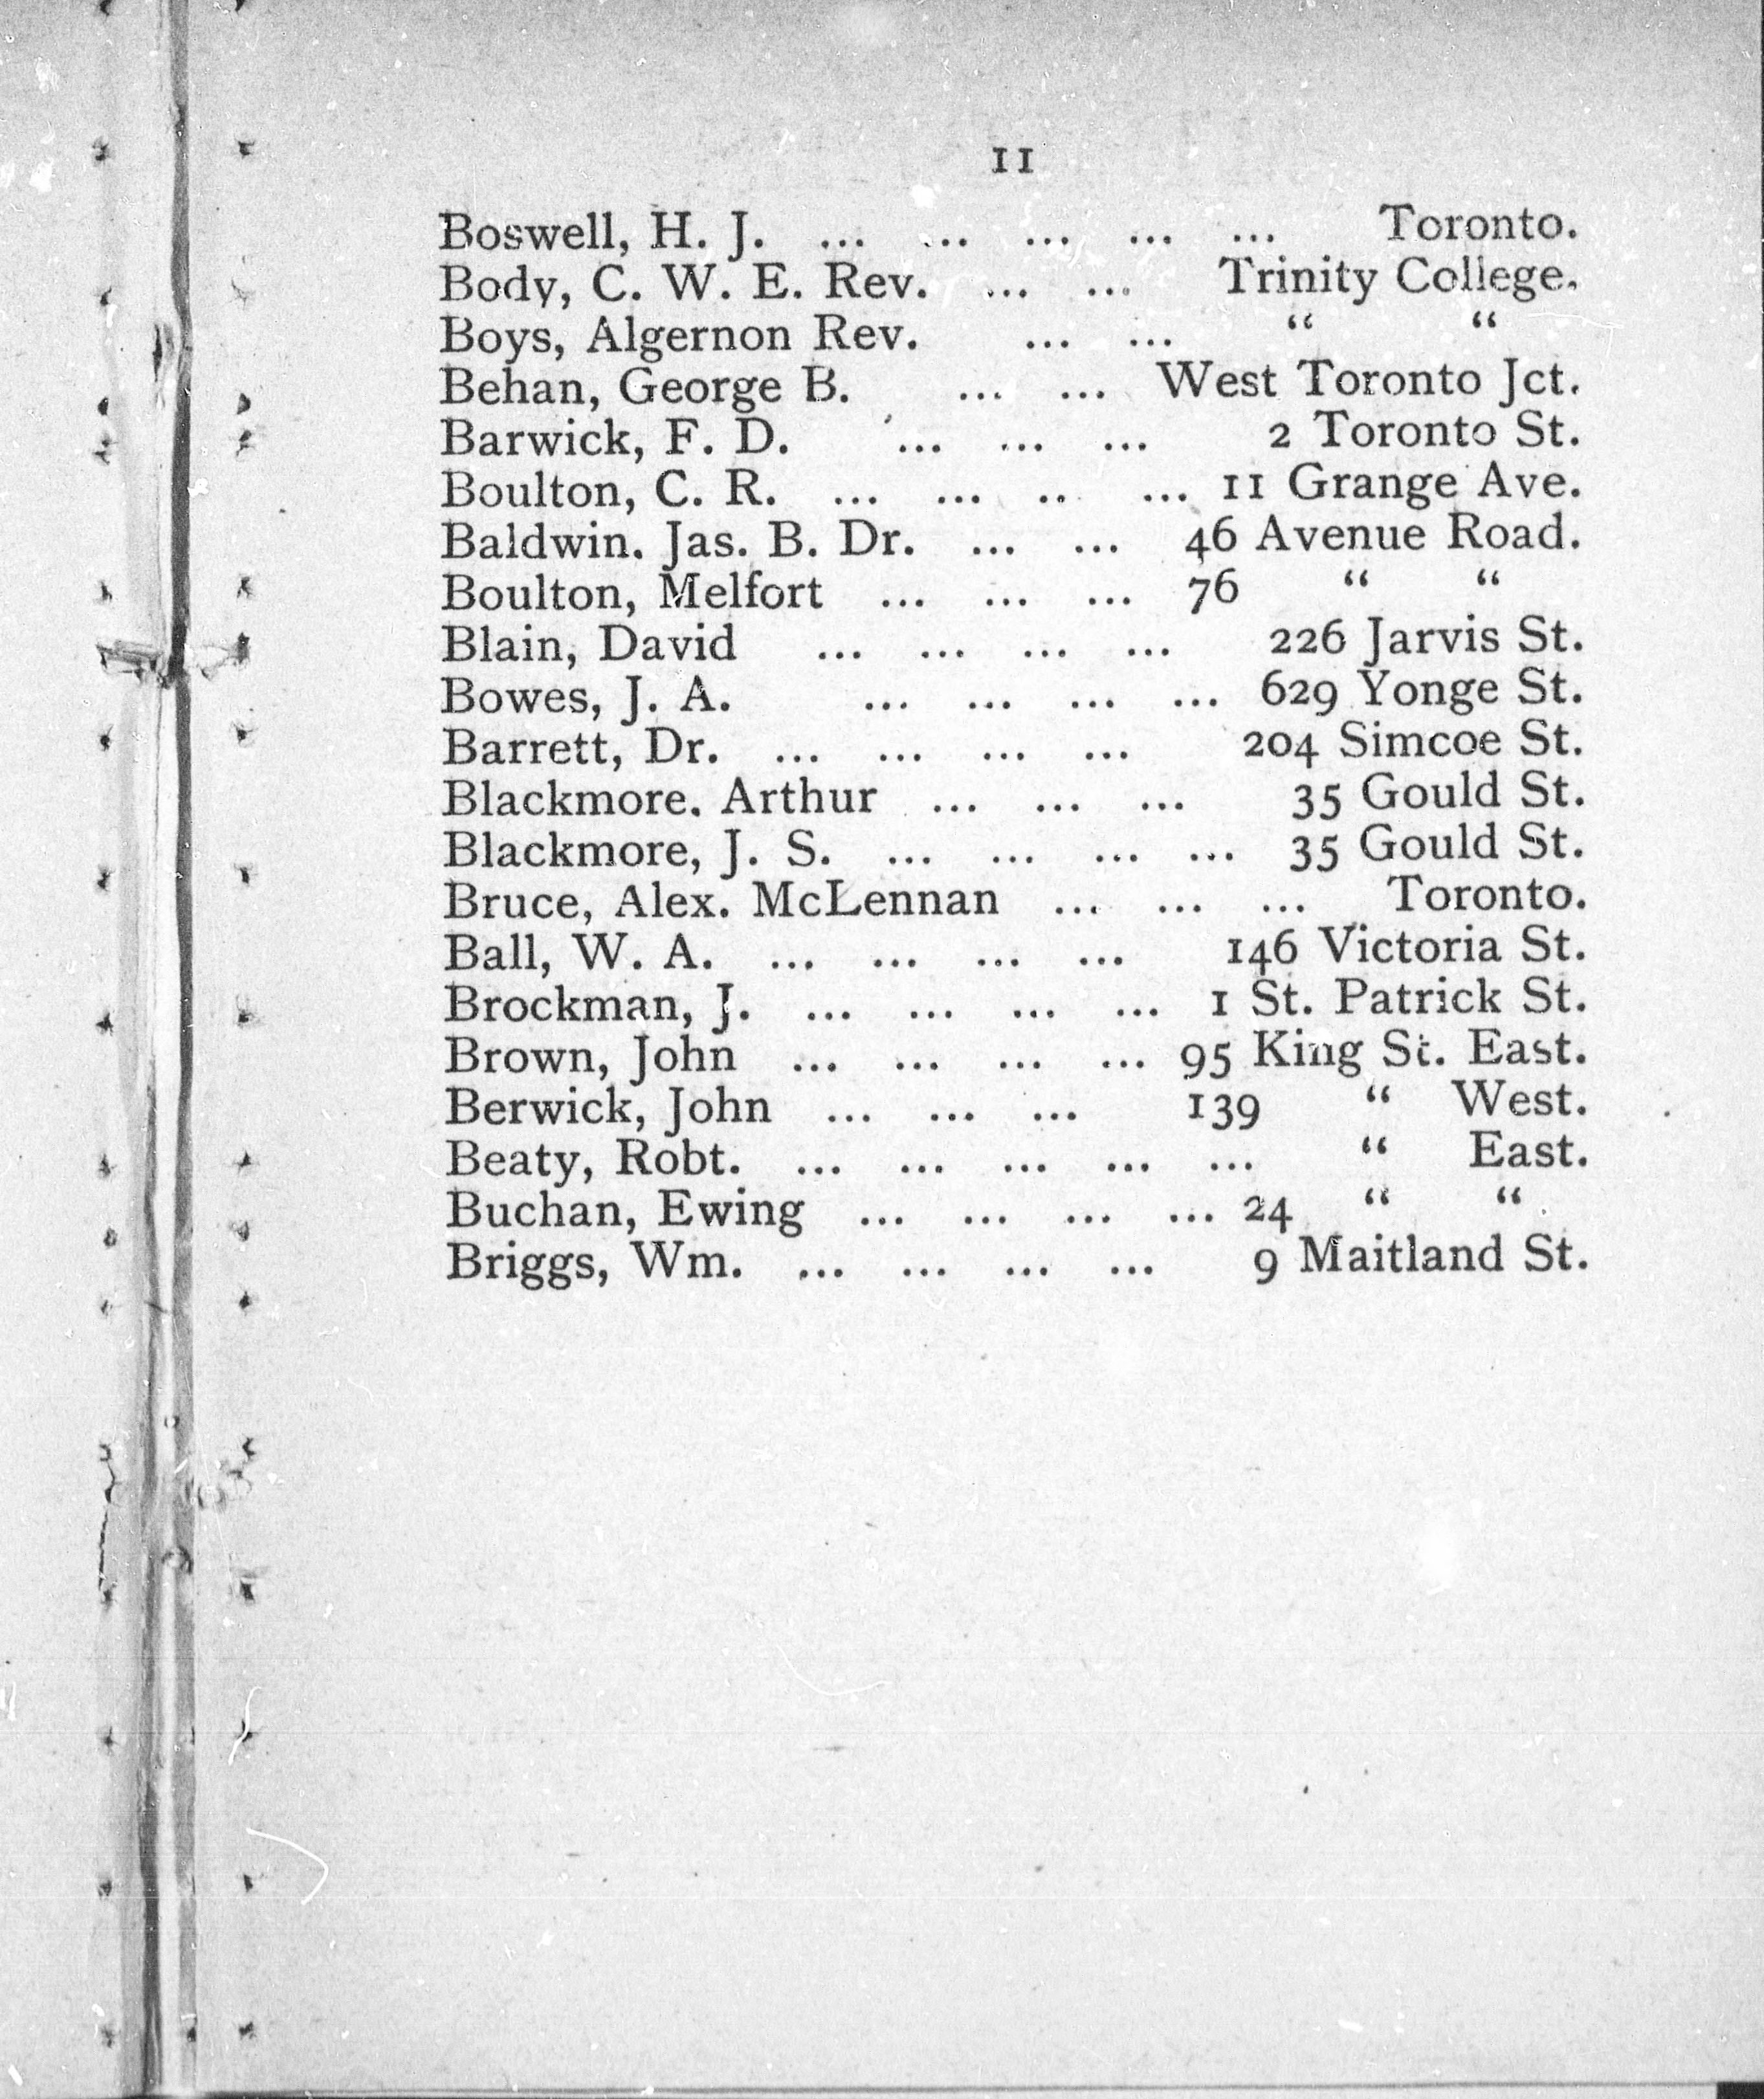 11
Boswell, H. J. ... ... ... ... ... Toronto.
Body, C. W. E. Rev. ... ... Trinity College.
Boys, Algernon Rev. ... ... “ “
Behan, George B. ... ... West Toronto Jct.
Barwick, F. D. ... ... ... 2 Toronto St.
Boulton, C. R. ... ... .. ... 11 Grange Ave.
Baldwin. Jas. B. Dr. ... ... 46 Avenue Road.
Boulton, Melfort ... ... ... 76 “ “
Blain, David ... ... ... ... 226 Jarvis St.
Bowes, J. A. ... ... ... ... 629 Yonge St.
Barrett, Dr. ... ... ... ... 204 Simcoe St.
Blackmore. Arthur ... ... ... 35 Gould St.
Blackmore, J. S. ... ... ... ... 35 Gould St.
Bruce, Alex. McLennan ... ... ... Toronto.
Ball, W. A. ... ... ... ... 146 Victoria St.
Brockman, J. ... ... ... ... 1 St. Patrick St.
Brown, John ... ... ... ... 95 King St. East.
Berwick, John ... ... ... 139 “ West.
Beaty, Robt. ... ... ... ... ... “ East.
Buchan, Ewing ... ... ... ... 24 “ “
Briggs, Wm. ... ... ... ... 9 Maitland St.